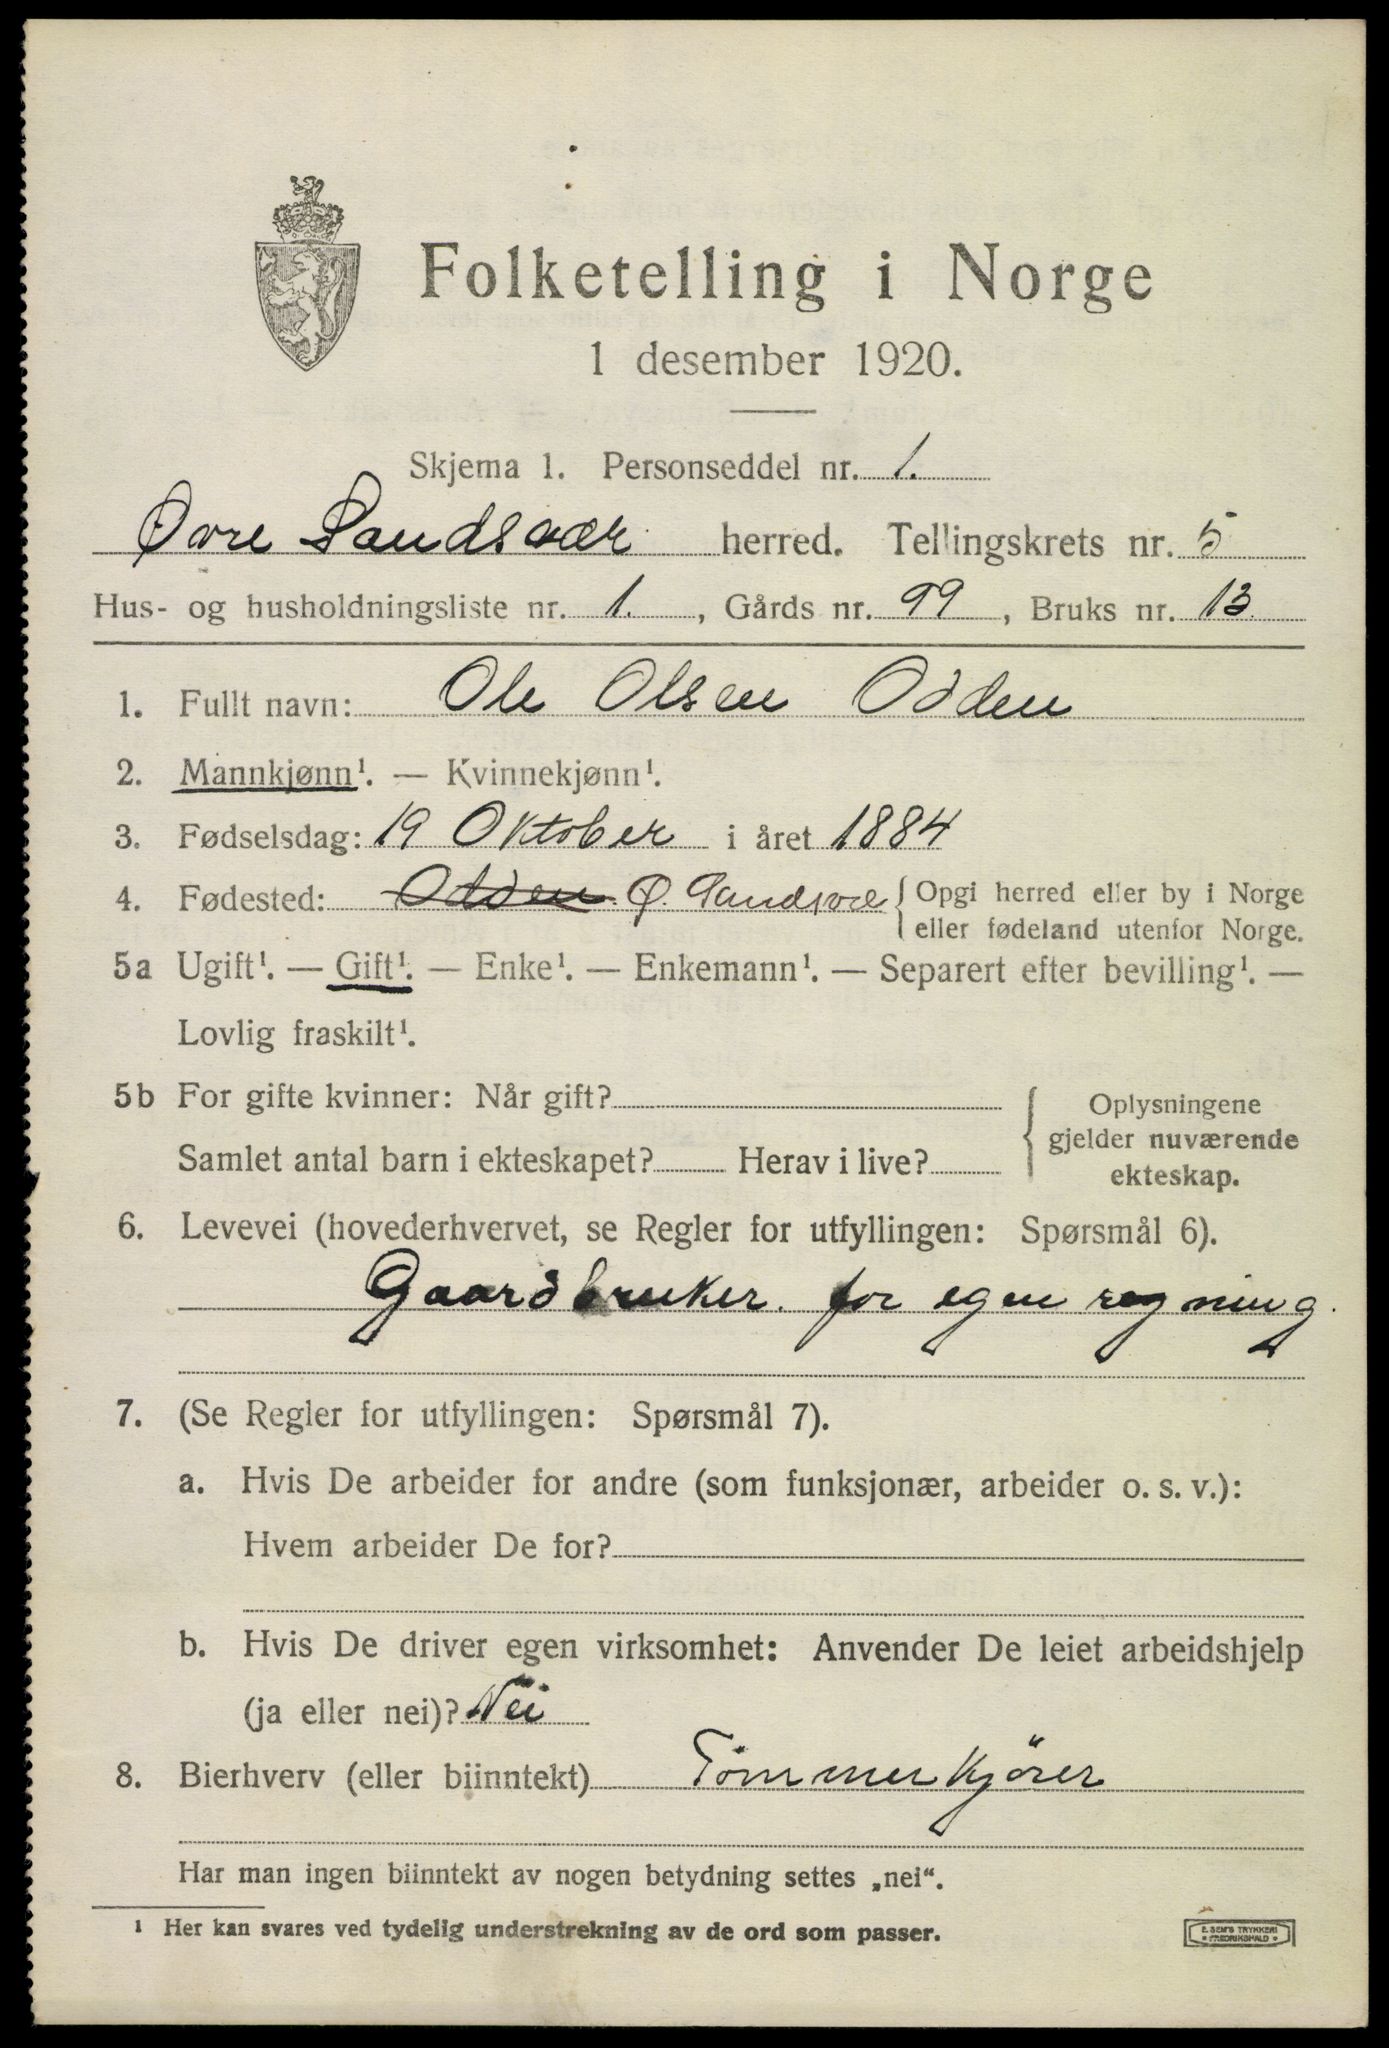 Folketelling i Norge
1 desember 1920.
Skjema 1. Personseddel nr. 1.
Øvre Sandsvær herred. Tellingskrets nr. 5
Hus- og husholdningsliste nr. 1. , Gårds nr. 99 , Bruks nr. 13.
1. Fullt navn: Ole Olsen Odden
2. Mannkjønn¹. — Kvinnekjønn¹.
3. Fødselsdag: 19 Oktober i året 1884
4. Fødested: Odden. Ø. Sandsvæ { Opgi herred eller by i Norge
eller fødeland utenfor Norge.
5a Ugift¹. — Gift¹. — Enke¹. — Enkemann¹. — Separert efter bevilling¹. —
Lovlig fraskilt¹.
5b For gifte kvinner: Når gift?
Samlet antal barn i ekteskapet? Herav i live?
Oplysningene
gjelder nuværende
ekteskap.
6. Levevei (hovederhvervet, se Regler for utfyllingen: Spørsmål 6).
Gaardbruker. for egen regning.
7. (Se Regler for utfyllingen: Spørsmål 7).
a. Hvis De arbeider for andre (som funksjonær, arbeider o. s. v.):
Hvem arbeider De for?
b. Hvis De driver egen virksomhet: Anvender De leiet arbeidshjelp
(ja eller nei)? Nei
8. Bierhverv (eller biinntekt) Tømmerkjörer
Har man ingen biinntekt av nogen betydning settes „nei“.
¹ Her kan svares ved tydelig understrekning av de ord som passer.
E. SEM'S TRYKKERI
* FREDRIKSHALD *